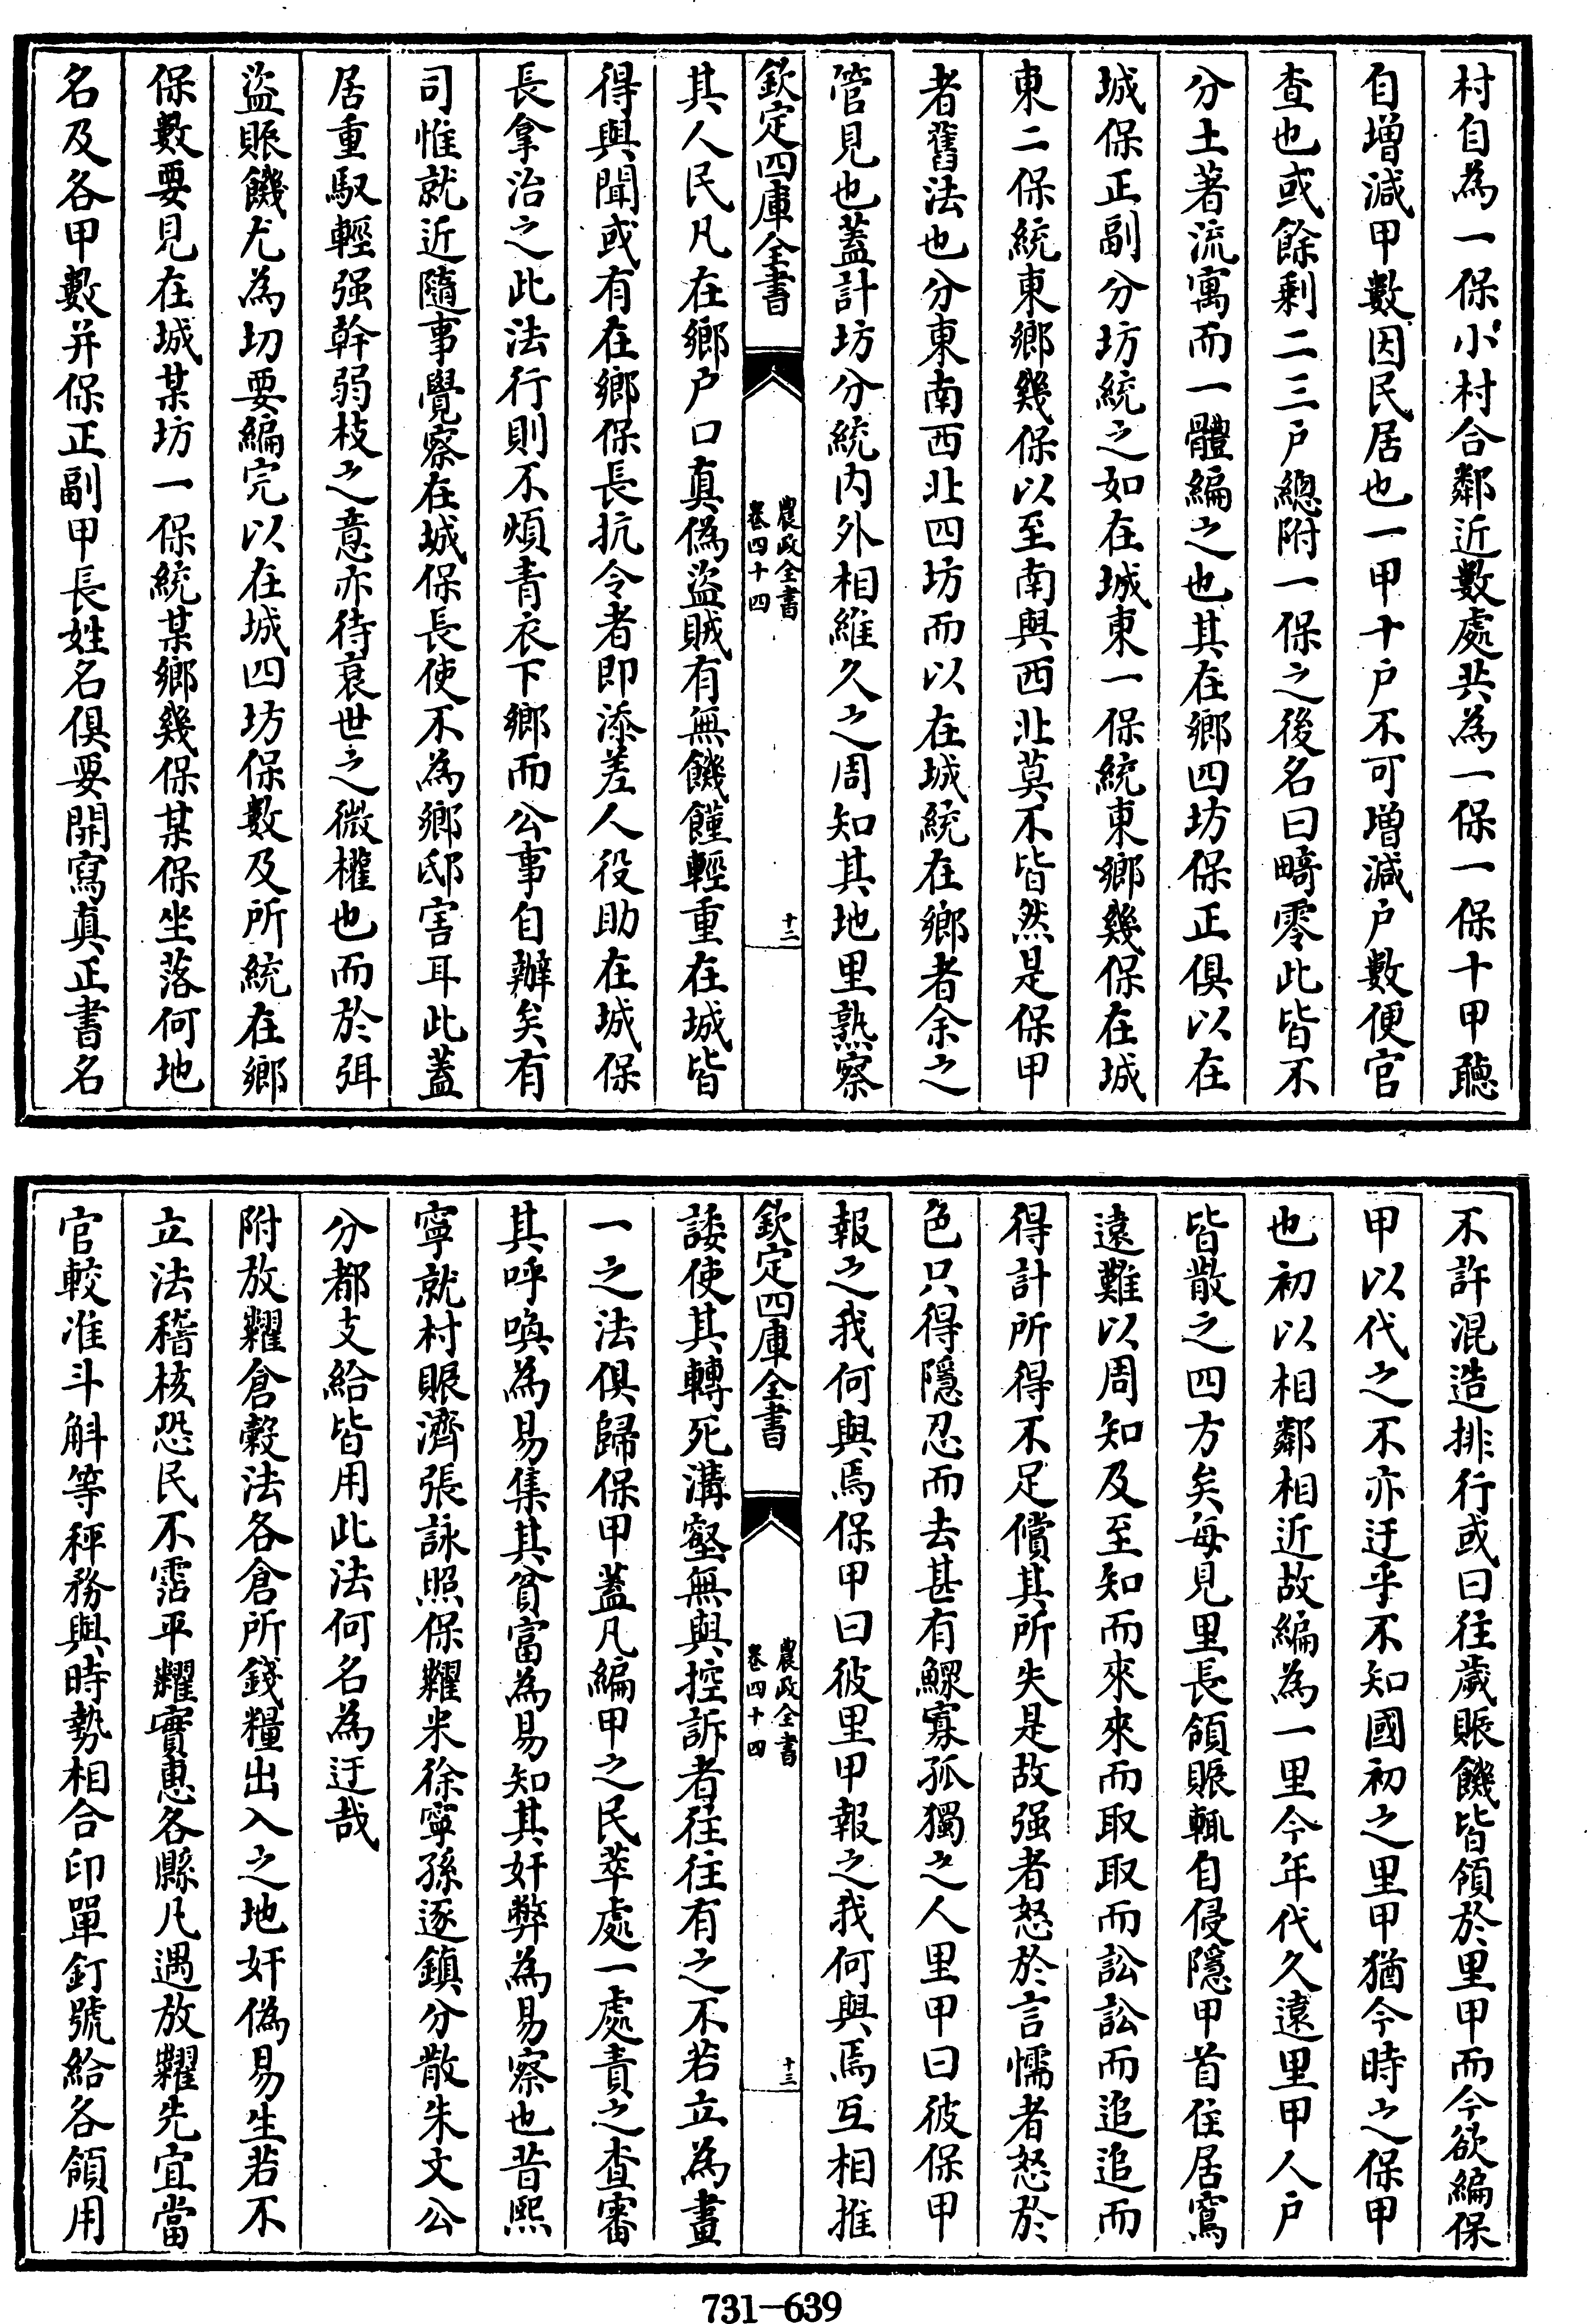 村自為一保小村合鄰近數處共為一保一保十甲聽
自增減甲數因民居也一甲十户不可增減户數便官
查也或餘剩二三户總附一保之後名曰畸零此皆不
分土著流寓而一體編之也其在鄉四坊保正俱以在
城保正副分坊統之如在城東一保統東鄉幾保在城
東二保統東鄉幾保以至南與西北莫不皆然是保甲
者舊法也分東南西北四坊而以在城統在鄉者余之
管見也蓋計坊分統内外相維久之周知其地里熟察
欽定四庫全書
農政全書
卷四十四
十二
其人民凡在鄉户口真偽盜賊有無饑饉輕重在城皆
得與聞或有在鄉保長抗令者即添差人役助在城保
長拿治之此法行則不煩青衣下鄉而公事自辦矣有
司惟就近隨事覺察在城保長使不為鄉邸害耳此蓋
居重馭輕强幹弱枝之意亦待衰世之微權也而於弭
盜賑饑尤為切要編完以在城四坊保數及所統在鄉
保數要見在城某坊一保統某鄉幾保某保坐落何地
名及各甲數并保正副甲長姓名俱要開寫真正書名
不許混造排行或曰往歲賑饑皆領於里甲而今欲編保
甲以代之不亦迂乎不知國初之里甲猶今時之保甲
也初以相鄰相近故編為一里今年代久遠里甲人户
皆散之四方矣每見里長領賑輒自侵隱甲首住居窵
遠難以周知及至知而來來而取取而訟訟而追追而
得計所得不足償其所失是故强者怒於言懦者怒於
色只得隱忍而去甚有鰥寡孤獨之人里甲曰彼保甲
報之我何與焉保甲曰彼里甲報之我何與焉互相推
欽定四庫全書
農政全書
卷四十四
十三
諉使其轉死溝壑無與控訴者往往有之不若立為畫
一之法俱歸保甲蓋凡編甲之民萃處一處責之查審
其呼喚為易集其貧富為易知其奸弊為易察也昔熙
寧就村賑濟張詠照保糶米徐寧孫逐鎮分散朱文公
分都支給皆用此法何名為迂哉
附放糶倉穀法各倉所錢糧出入之地奸偽易生若不
立法稽核恐民不霑平糶實惠各縣凡遇放糶先宜當
官較准斗斛等秤務與時勢相合印單釘號給各領用
731—639